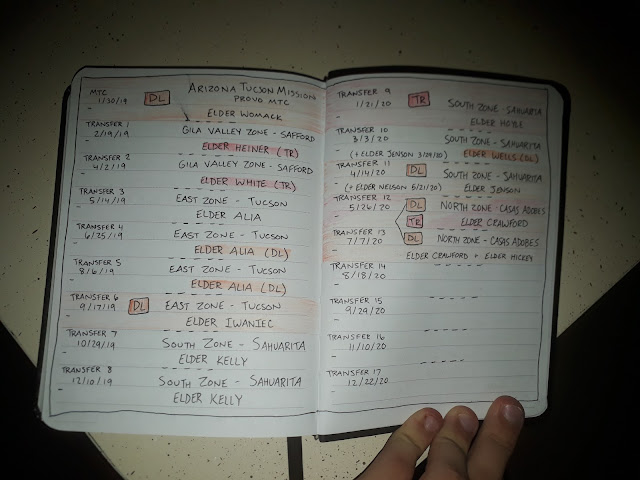 MTC
1/30/19
DL
ARIZONA TUCSON MISSION
PROVO MTC
ELDER WOMACK
TRANSFER 1
2/19/19
GILA VALLEY ZONE - SAFFORD
ELDER HEINER (TR)
TRANSFER 2
4/2/19
GILA VALLEY ZONE - SAFFORD
ELDER WHITE (TR)
TRANSFER 3
5/14/19
EAST ZONE - TUCSON
ELDER ALIA
TRANSFER 4
6/25/19
EAST ZONE - TUCSON
ELDER ALIA (DL)
TRANSFER 5
8/6/19
EAST ZONE - TUCSON
ELDER ALIA (DL)
TRANSFER 6
9/17/19
DL
EAST ZONE - TUCSON
ELDER IWANIEC
TRANSFER 7
10/29/19
SOUTH ZONE - SAHUARITA
ELDER KELLY
TRANSFER 8
12/10/19
SOUTH ZONE - SAHUARITA
ELDER KELLY
TRANSFER 9
1/21/20
TR
SOUTH ZONE - SAHUARITA
ELDER HOYLE
TRANSFER 10
3/3/20
SOUTH ZONE - SAHUARITA
(+ ELDER JENSON 3/29/20) ELDER WELLS (DL)
TRANSFER 11
4/14/20
DL
SOUTH ZONE - SAHUARITA
(+ ELDER NELSON 5/21/20) ELDER JENSON
TRANSFER 12
5/26/20
DL
NORTH ZONE - CASAS ADOBES
TR
ELDER CRAWFORD
TRANSFER 13
7/7/20
DL
NORTH ZONE - CASAS ADOBES
ELDER CRAWFORD + ELDER HICKEY
TRANSFER 14
8/18/20
TRANSFER 15
9/29/20
TRANSFER 16
11/10/20
TRANSFER 17
12/22/20